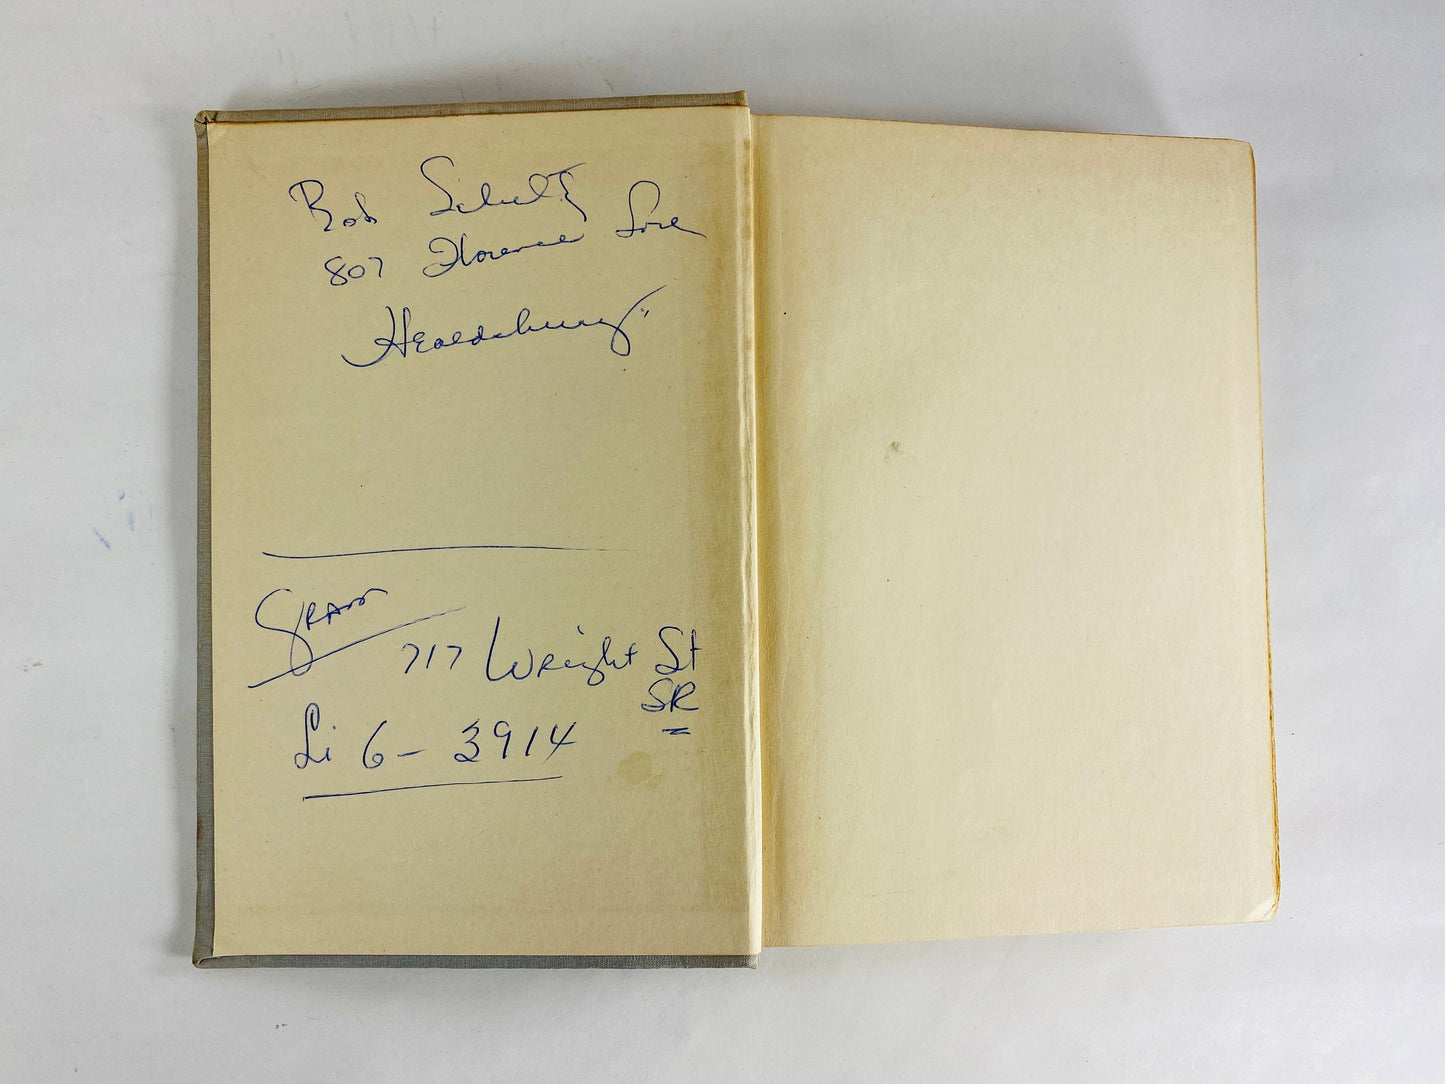 Bob Schultz
807 Florence Lane
Healdsburg
GRAM
717 Wright St
SR
Li 6 - 3914